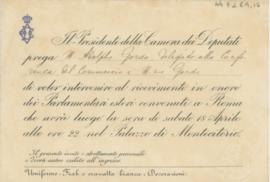 Il Presidente della Camera dei Deputati
prega M. Adolpho Gordo Delegato alla Confe-
renza del Commercio e M.me Gordo
di voler intervenire al ricevimento in onore
dei Parlamentari esteri convenuti a Roma
che avrà luogo la sera di sabato 18 Aprile
alle ore 22 nel Palazzo di Montecitorio.
Il presente invito è strettamente personale
e dovrà essere esibito all'ingresso
Uniforme: Frak e cravatta bianca: Decorazioni